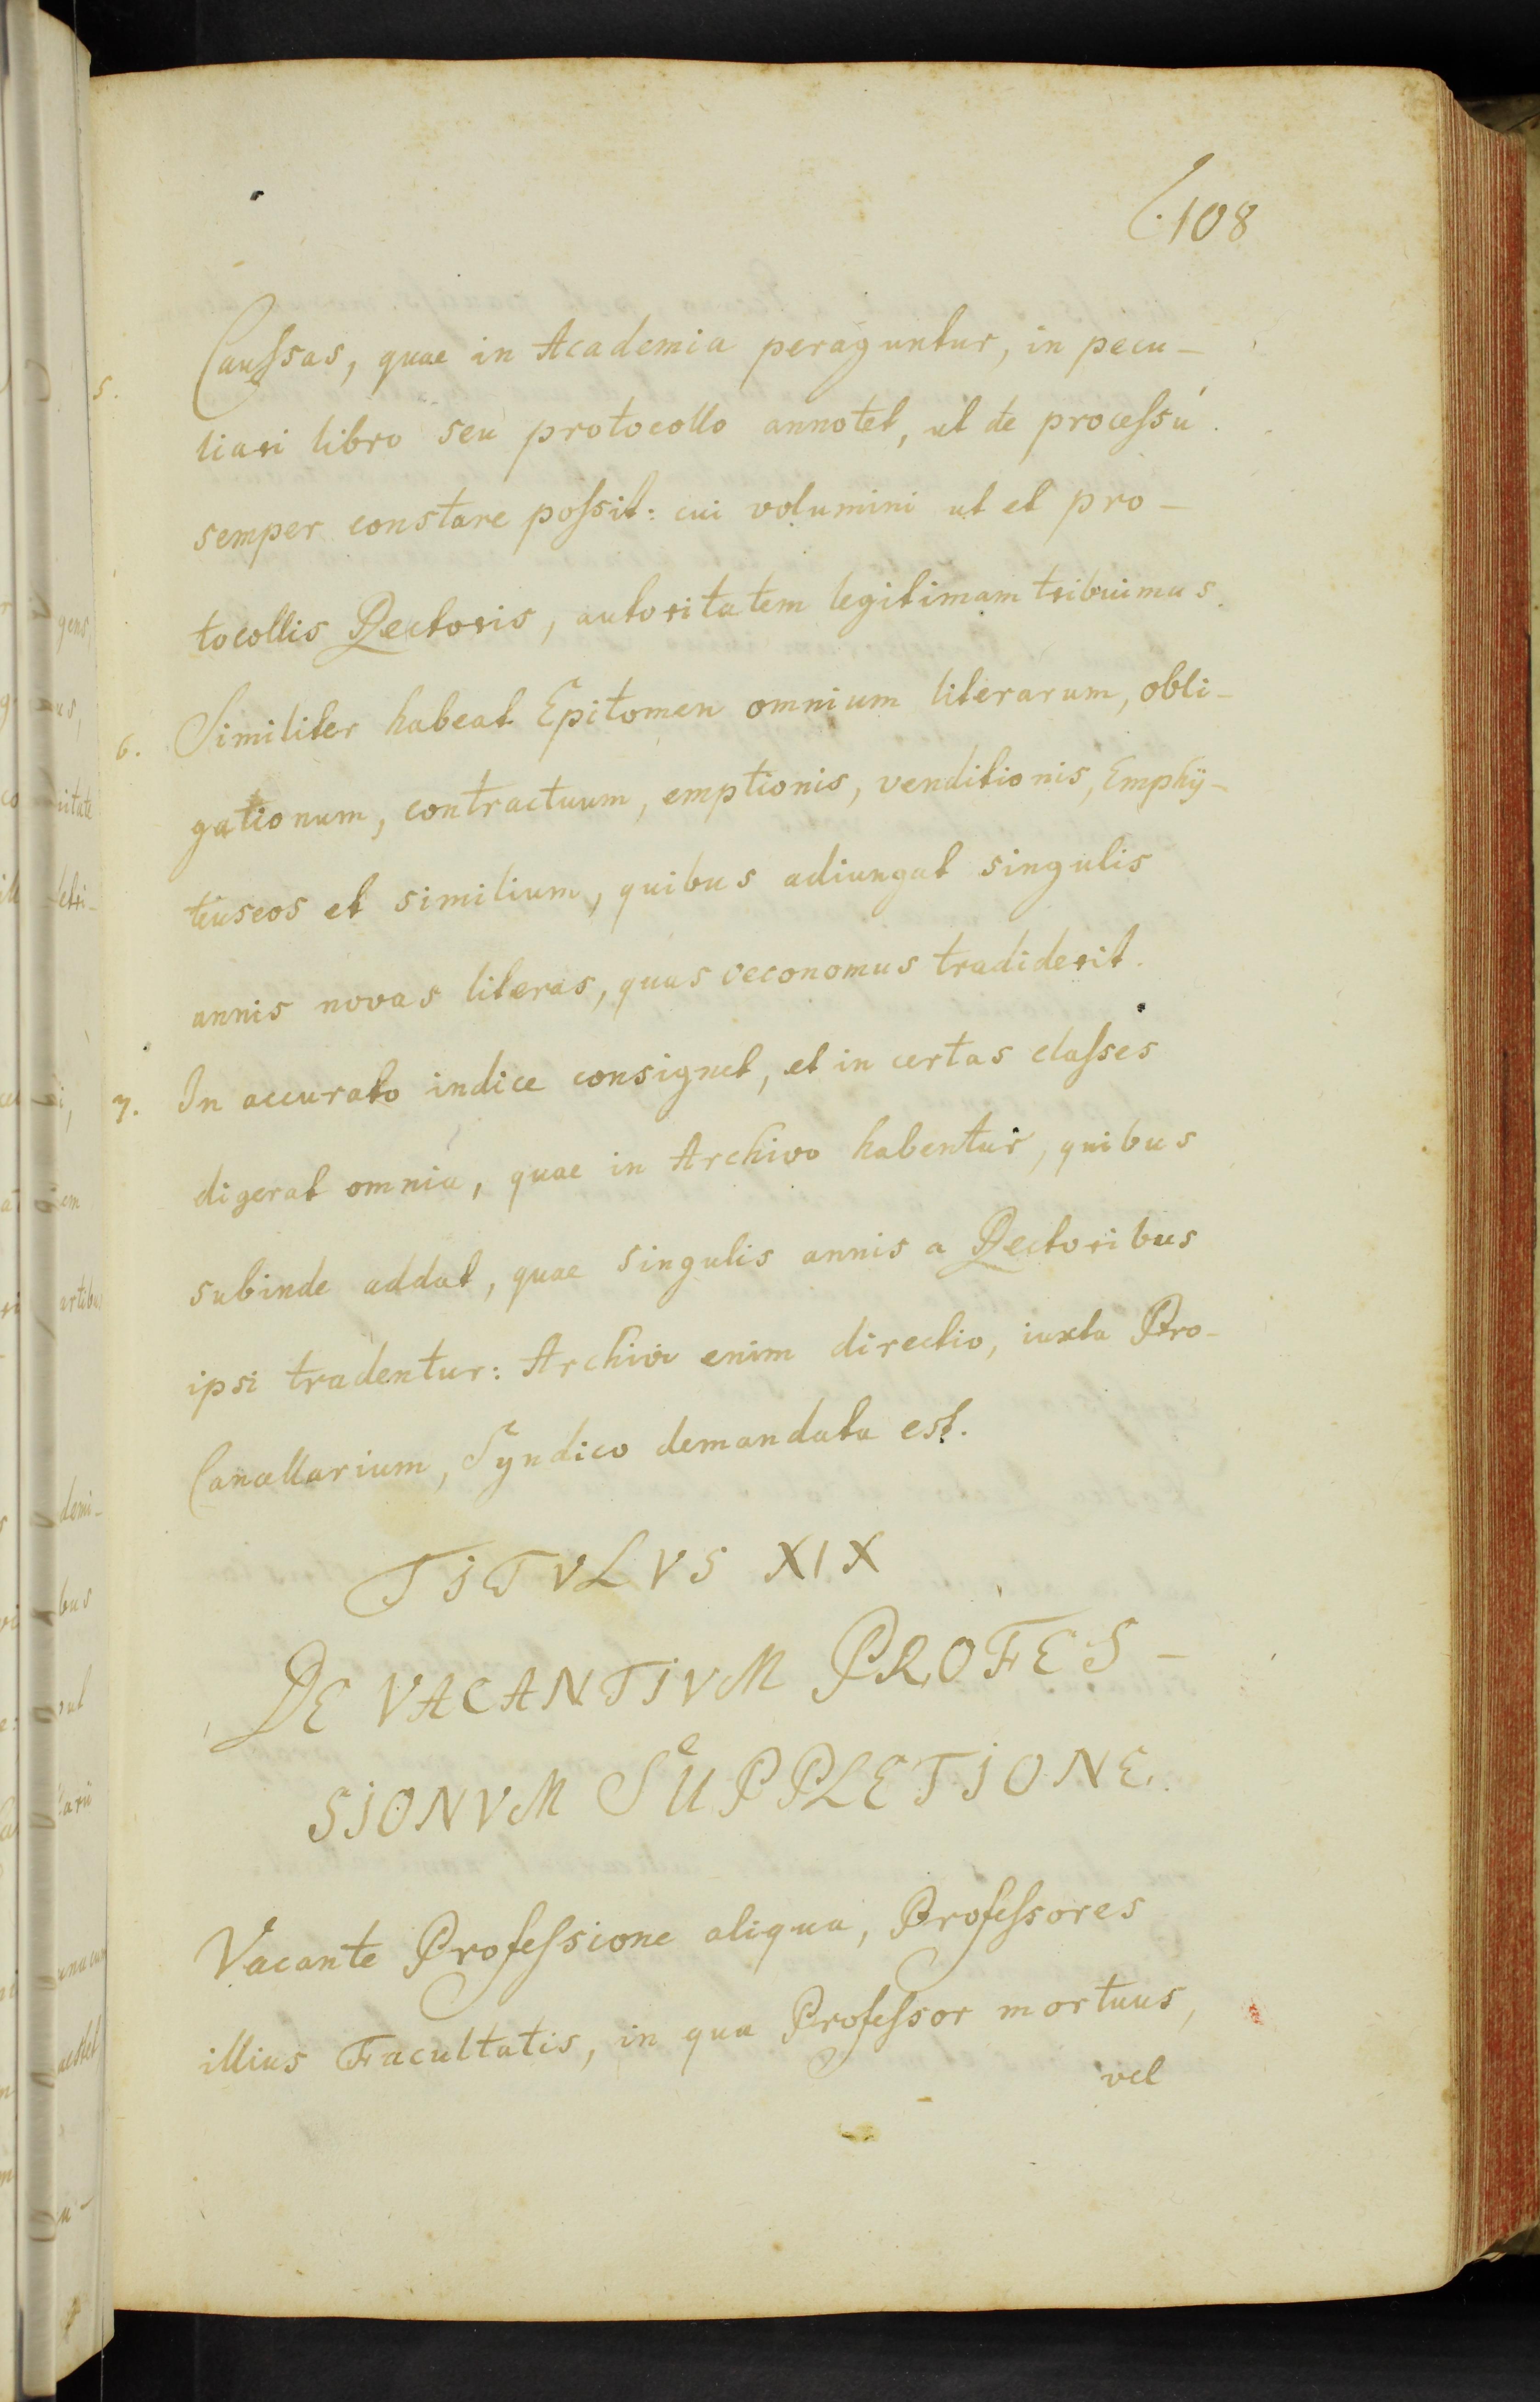 108
5. Caussas, quae in Academia peraguntur, in pecu-
liari libro seu protocollo annotet, ut de processu
semper constare possit: cui volumini ut et pro-
tocollis Rectoris, autoritatem legitimam tribuimus.
6. Similiter habeat Epitomen omnium literarum, obli-
gationum, contractuum, emptionis, venditionis, Emphÿ-
teuseos et similium, quibus adiungat singulis
annis novas literas, quas oeconomus tradiderit.
7. In accurato indice consignet, et in certas classes
digerat omnia, quae in Archivo habentur, quibus
subinde addat, quae singulis annis a Rectoribus
ipsi tradentur: Archivi enim directio, iuxta Pro-
Cancellarium, Syndico demandata est.
TITVLVS XIX
DE VACANTIVM PROFES-
SIONVM SUPPLETIONE.
Vacante Professione aliqua, Professores
illius Facultatis, in qua Professor mortuus,
vel